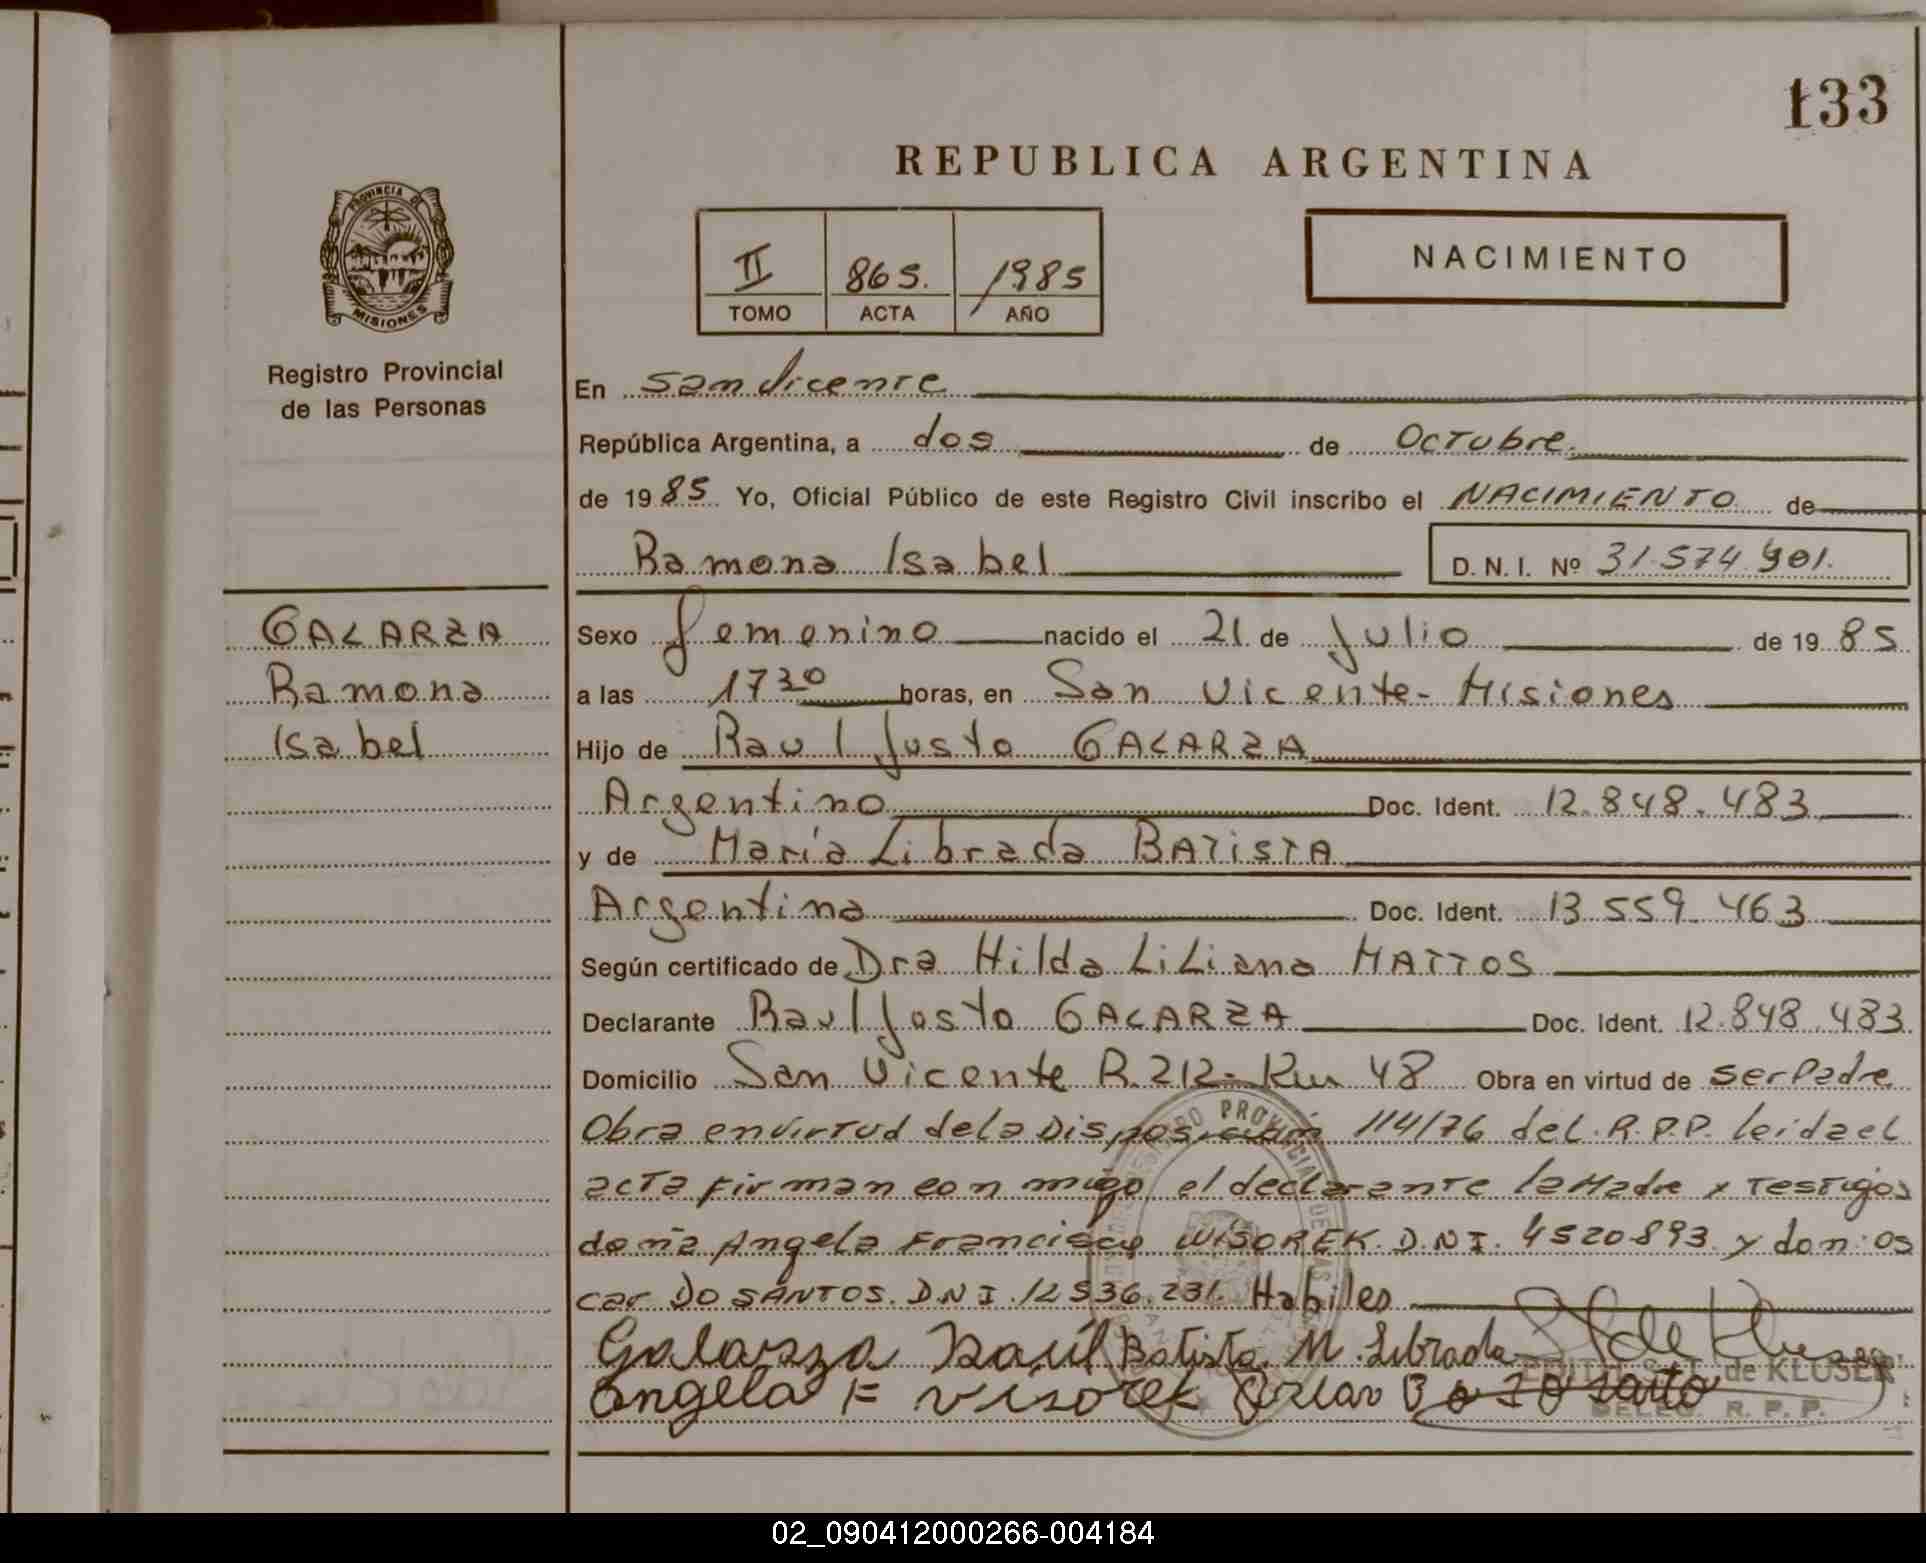 133
REPUBLICA ARGENTINA
PROVINCIA DE
MISIONES
Registro Provincial
de las Personas
II 865. 1985
TOMO ACTA AÑO
NACIMIENTO
En San Vicente
República Argentina, a dos de Octubre.
de 1985 Yo, Oficial Público de este Registro Civil inscribo el NACIMIENTO de
Ramona Isabel D. N. I. Nº 31.574.901.
GALARZA
Ramona
Isabel
Sexo femenino nacido el 21 de Julio de 1985
a las 1730 horas, en San Vicente - Misiones
Hijo de Raul Justo GALARZA
Argentino Doc. Ident. 12.848.483
y de María Librada BATISTA
Argentina Doc. Ident. 13.559.463
Según certificado de Dra Hilda LiLiana MATTOS
Declarante Raul Justo GALARZA Doc. Ident. 12.848.483
Domicilio San Vicente R.212- Km 48 Obra en virtud de ser Padre
Obra en virtud de la Disposición 114/76 del R.P.P. leida el
acta firman con migo el declarante la Madre y testigos
doña Angela Francisca WISOREK. D.N.I. 4520893 y don: Os
car DO SANTOS. D.N.I. 12536.231. Habiles
Galarza Raúl Batista M. Librada
Angela F visorek Oscar Do santo
EDITH S. T. de KLUSER
DELEG. R. P. P.
02_090412000266-004184